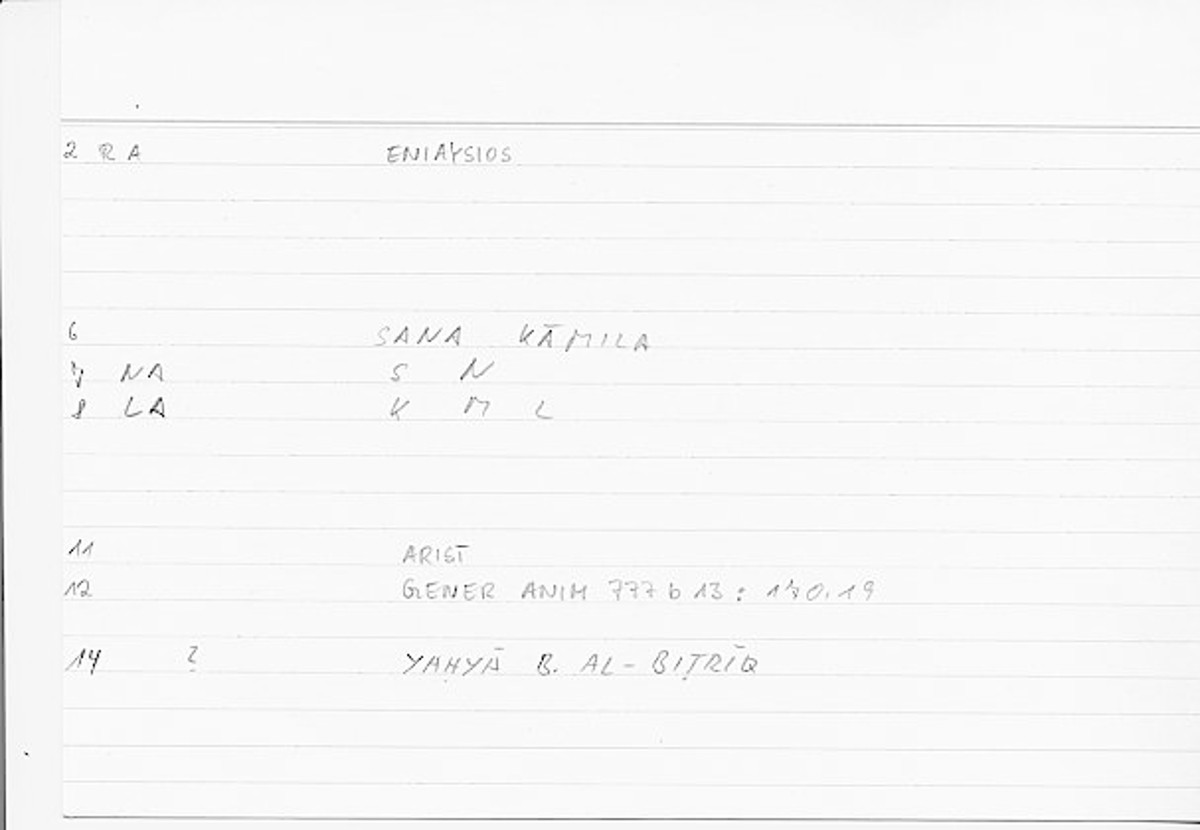 2 RA ENIAYSIOS
6 SANA KĀMILA
7 NA S N
8 LA K M L
11 ARIST
12 GENER ANIM 777 b 13 : 170.19
14 ? YAḤYĀ B. AL-BIṬRĪQ